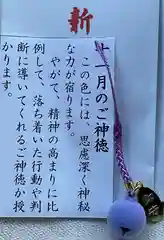 新
月のご神徳
この色には、思慮深く神秘
な力が宿ります。
やがて、精神の高まりに比
例して、落ち着いた行動や判
断に導いてくれるご神徳が授
かります。